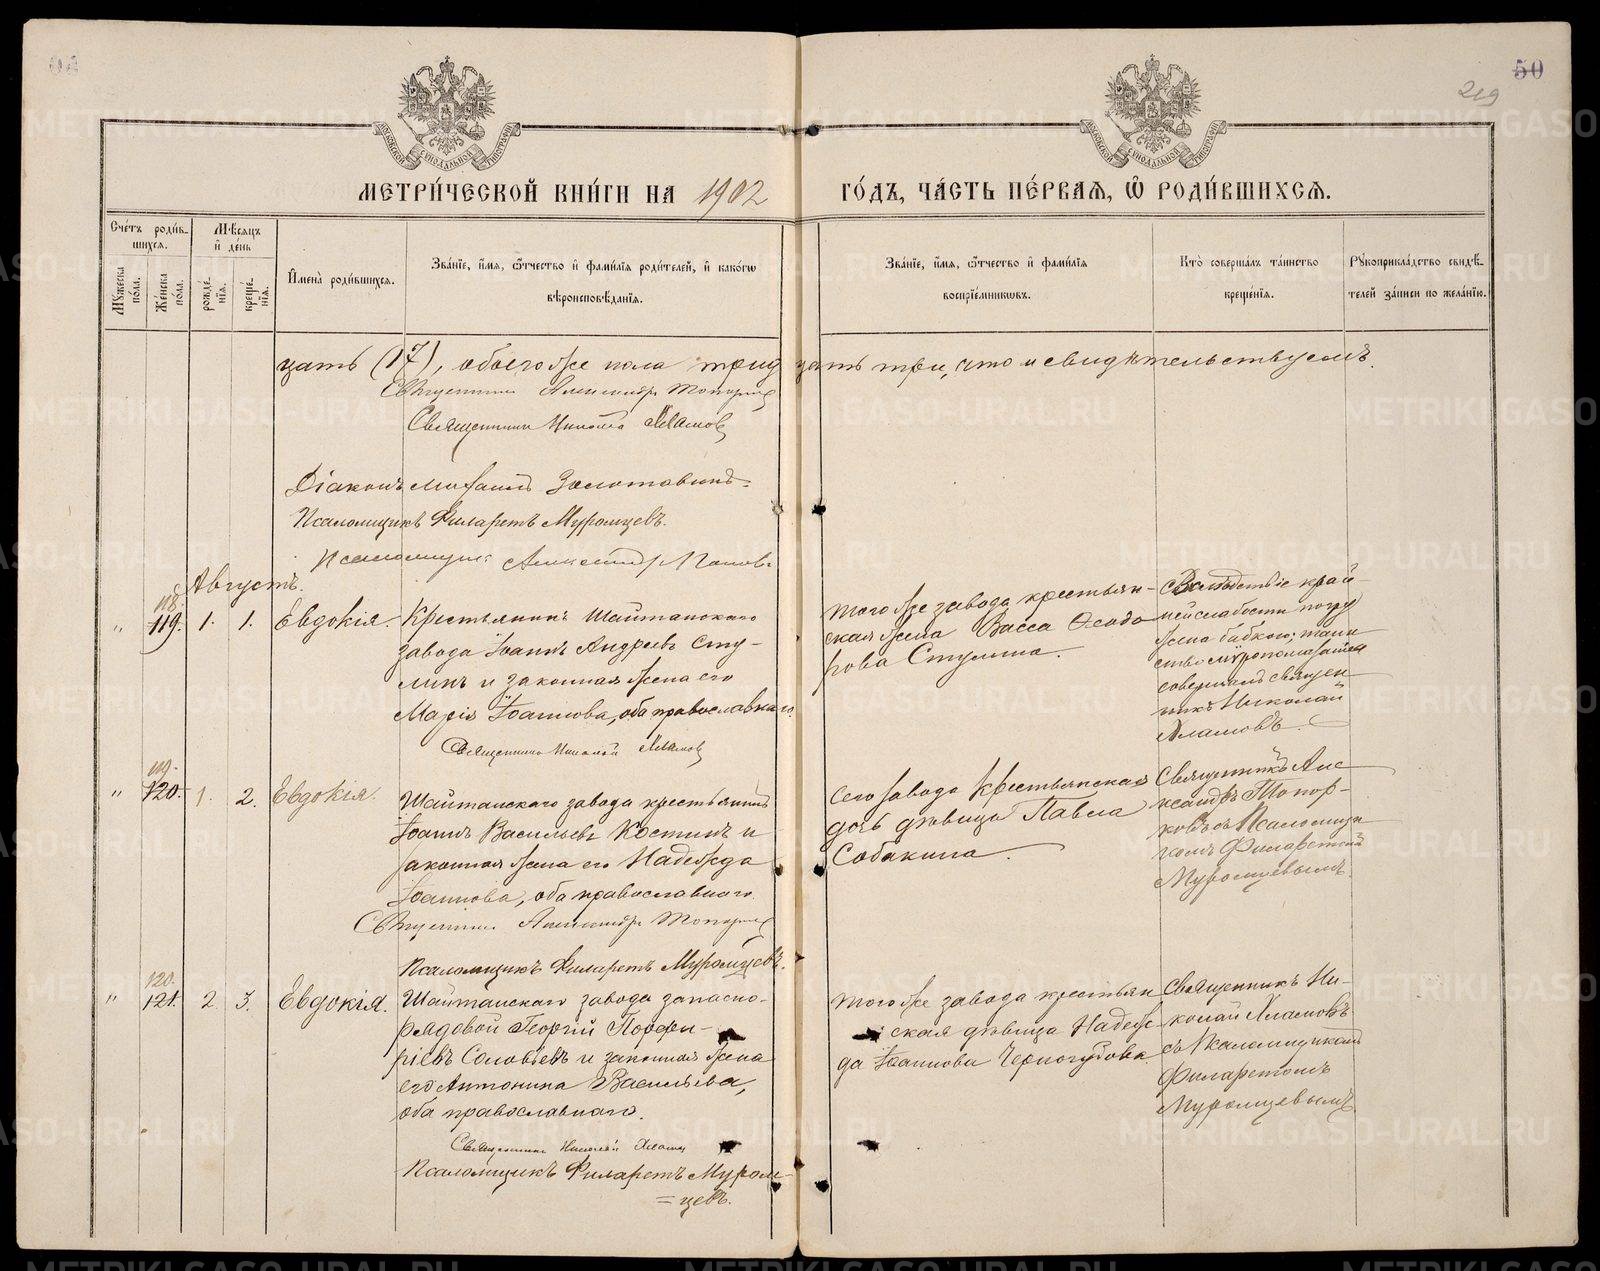 50
219
МОСКОВСКОЙ СѴНОДАЛЬНОЙ ТИПОГРАФІИ
МОСКОВСКОЙ СѴНОДАЛЬНОЙ ТИПОГРАФІИ
МЕТРИ́ЧЕСКОЙ КНИ́ГИ НА 1902 ГО́ДЪ, ЧА́СТЬ ПЕ́РВАѦ, Ѡ҆ РОДИ́ВШИХСѦ.
Сче́тъ роди́в-
шихсѧ.
Мꙋ́жеска по́ла.
Же́нска по́ла.
Мѣ́сѧцъ и҆ де́нь
рожде́-
нїѧ.
креще́-
нїѧ.
И҆мена̀ роди́вшихсѧ.
Зва́нїе, и҆́мѧ, ѻ҆́тчество и҆ фами́лїѧ роди́телей, и҆ како́гѡ
вѣроисповѣ́данїѧ.
Зва́нїе, и҆́мѧ, ѻ҆́тчество и҆ фами́лїѧ
воспрїе́мникѡвъ.
Кто̀ соверша́лъ та́инство
креще́нїѧ.
Рꙋкоприкла́дство свидѣ́-
телей за́писи по жела́нїю.
цать (17), обоего же пола трид цать три, что и свидѣтельствуемъ.
Священникъ Александръ Топорковъ
Священникъ Николай Хламовъ
Діаконъ Михаилъ Золотавинъ.
Псаломщикъ Филаретъ Муромцевъ.
Псаломщикъ Александръ Поповъ
Августъ.
118.
" 119. 1. 1. Евдокія. Крестьянинъ Шайтанскаго
завода Іоаннъ Андреевъ Сту-
линъ и законная жена его
Марія Іоаннова, оба православнаго.
Священникъ Николай Хламовъ
того же завода крестьян-
ская жена Васса Ѳеодо
рова Стулина.
Вслѣдствіе край-
ней слабости погру
жена бабкою; таин
ство мѵропомазанія
совершалъ священ
никъ Николай
Хламовъ.
119.
" 120. 1. 2. Евдокія. Шайтанскаго завода крестьянинъ
Іоаннъ Васильевъ Костинъ и
законная жена его Надежда
Іоаннова, оба православнаго.
Священникъ Александръ Топорковъ
Псаломщикъ Филаретъ Муромцевъ.
Сего завода крестьянская
дочь дѣвица Павла
Собакина.
Священникъ Але
ксандръ Топор-
ковъ съ Псаломщи
комъ Филаретомъ
Муромцевымъ.
120.
" 121. 2 3. Евдокія. Шайтанскаго завода запасно-
рядовой Георгій Порфи-
ріевъ Соловьевъ и законная жена
его Антонина Васильева,
оба православнаго.
Священникъ Николай Хламовъ
Псаломщикъ Филаретъ Муром-
=цевъ.
того же завода крестьян
ская дѣвица Надеж-
да Іоаннова Черногубова
Священникъ Ни-
колай Хламовъ
съ Псаломщикомъ
Филаретомъ
Муромцевымъ
METRIKI.GASO-URAL.RU